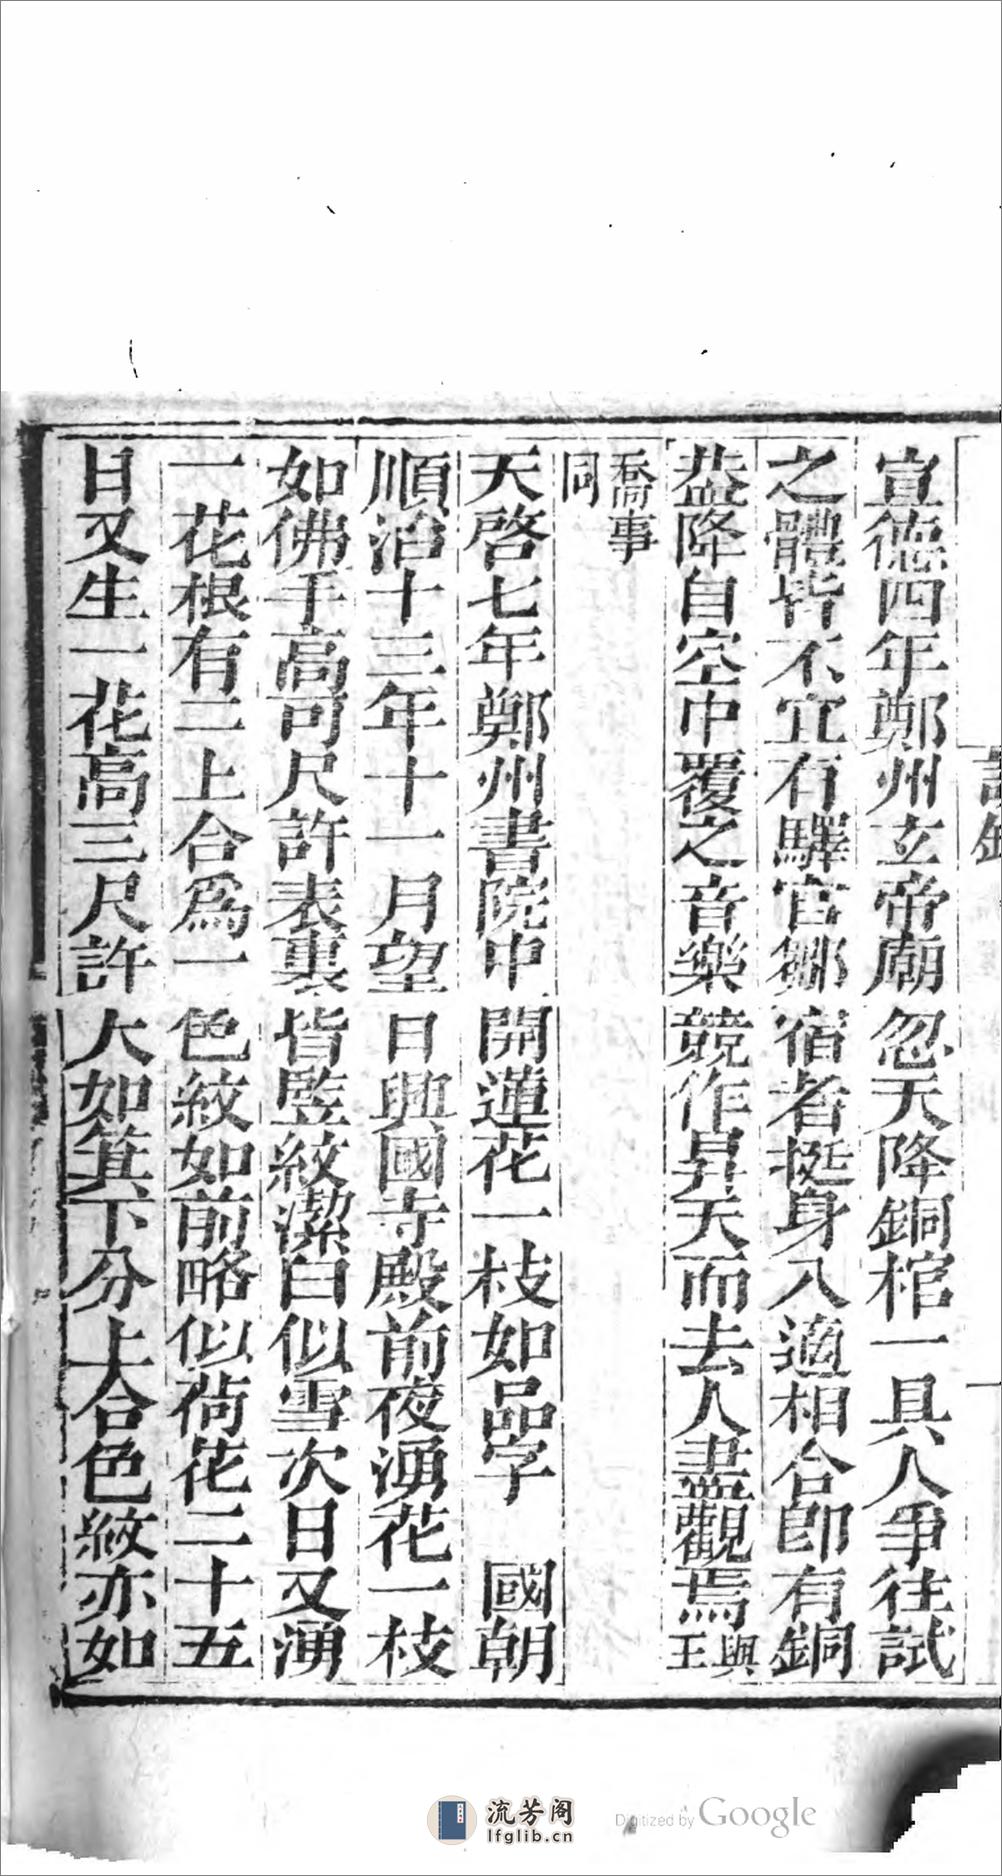 宣德四年鄭州玄帝廟忽天降銅棺一具人爭往試
之體皆不宜有驛官鄒宿者挺身入適相合卽有銅
葢降自空中覆之音樂競作昇天而去人盡觀焉與王
喬事同
天啓七年鄭州書院中開蓮花一枝如品字 國朝
順治十三年十一月望日興國寺殿前夜湧花一枝
如佛手高可尺許表裏皆竪紋潔白似雪次日又湧
一花根有二上合爲一色紋如前略似荷花二十五
日又生一花高三尺許大如箕下分上合色紋亦如
流芳阁
lfglib.cn
Digitized by Google